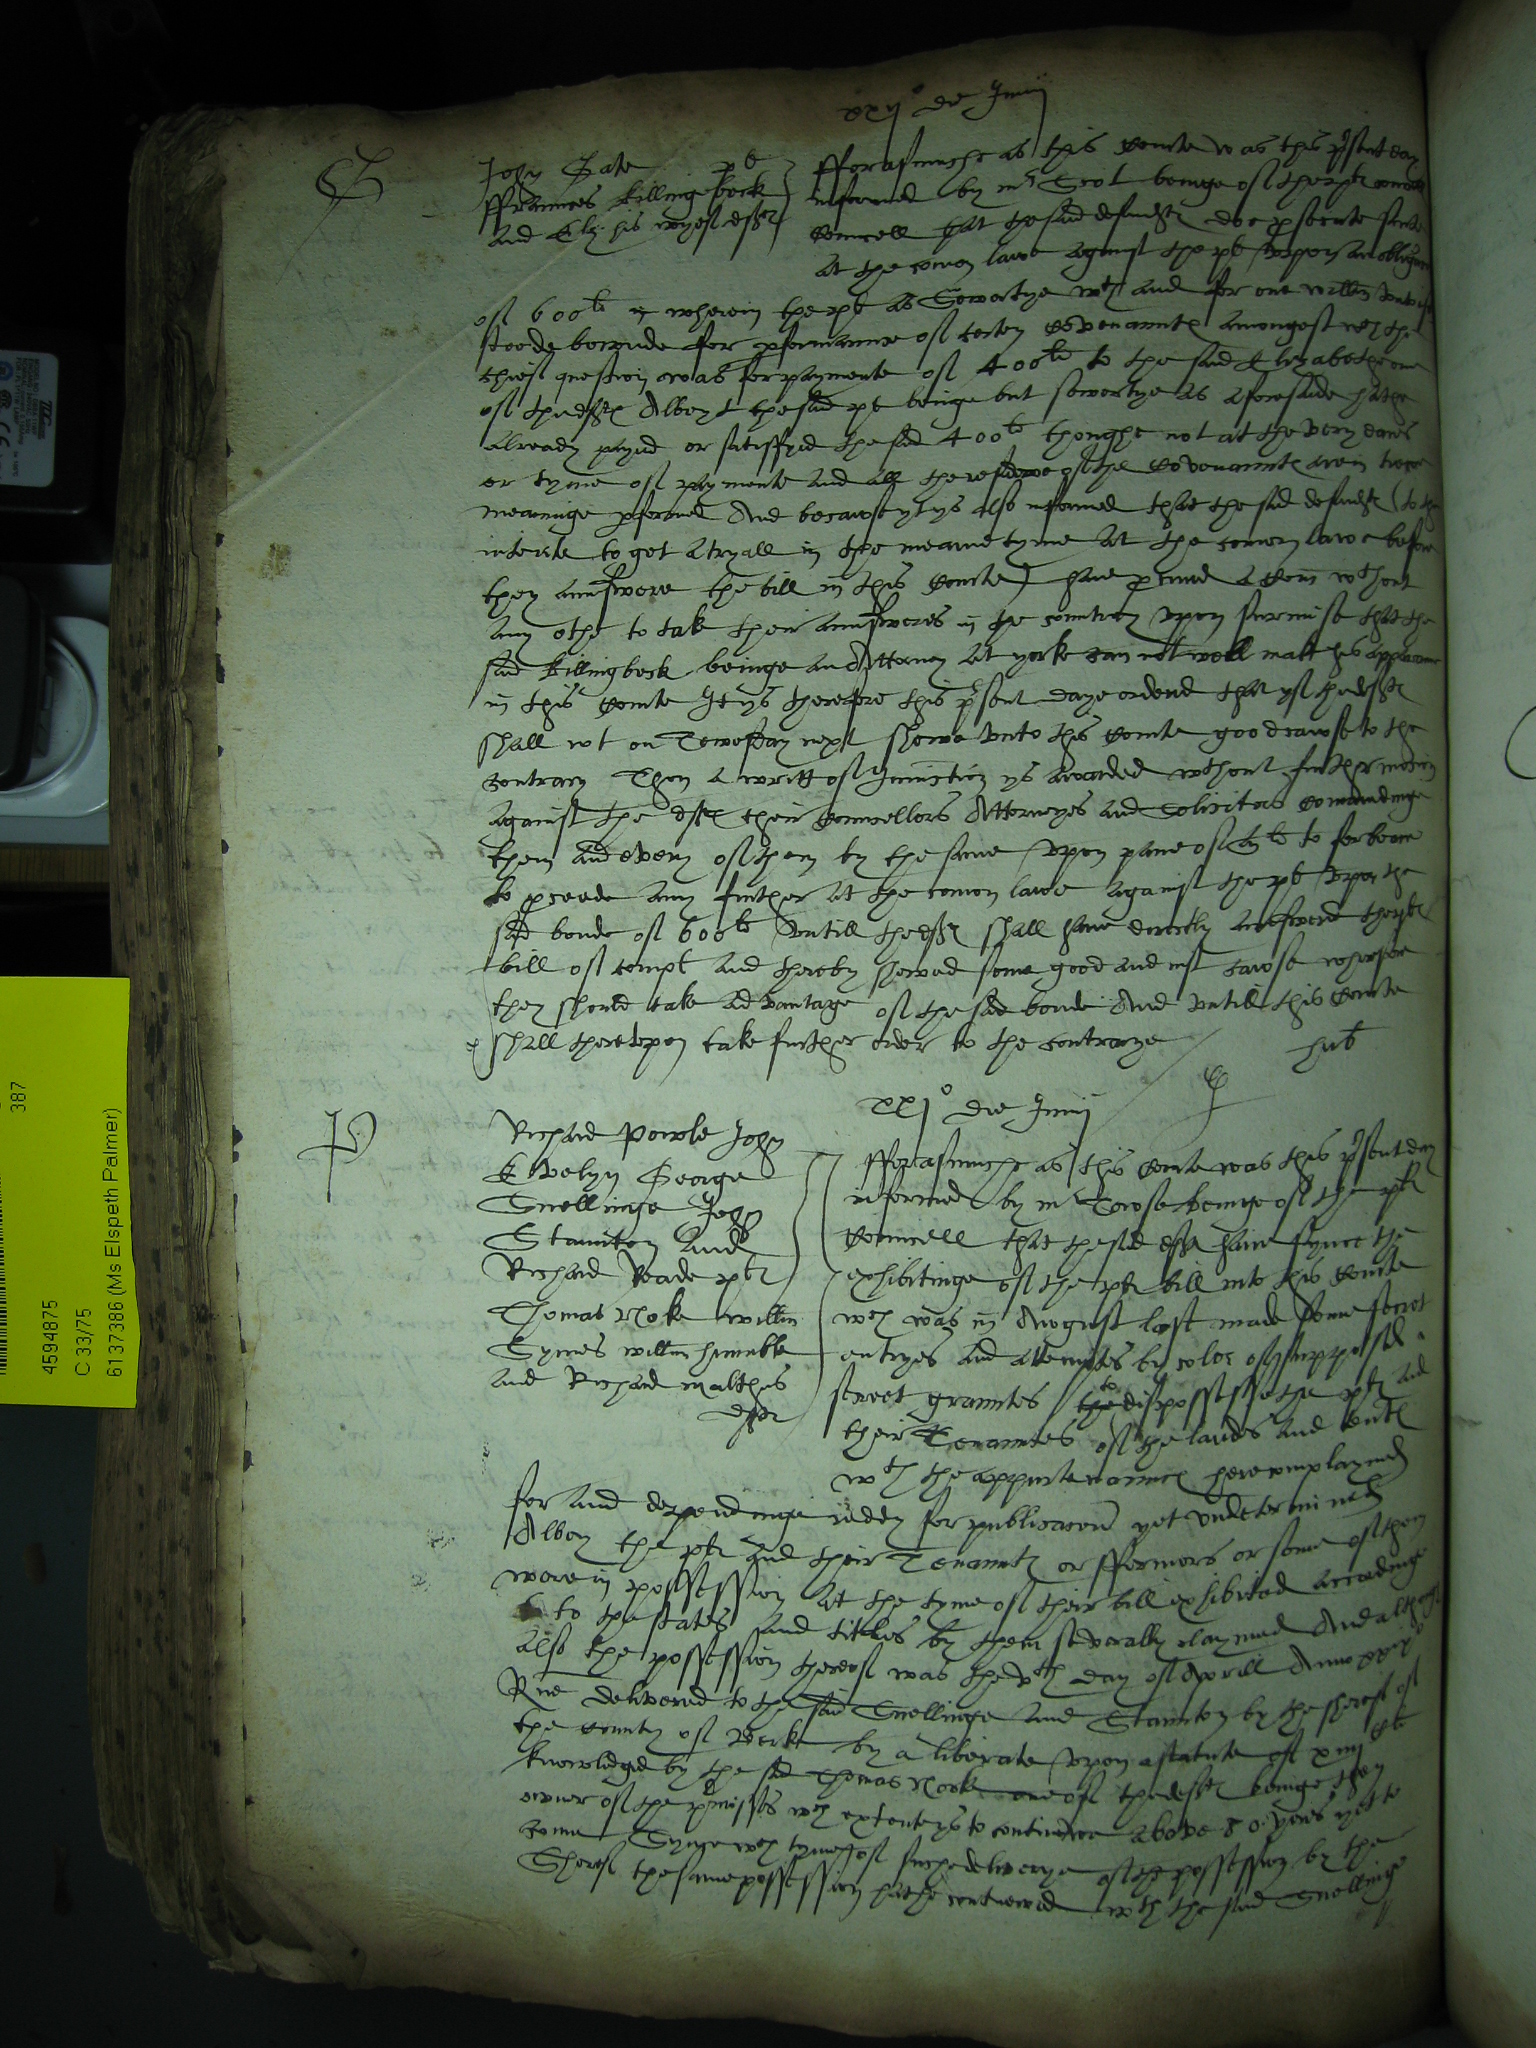 xxj° die Junij
G
John Gate pt
ffraunces Killingbeck
and Eliz his wyef deftes
fforasmuche as this Courte was this present day
informed by mr Scot beinge of the pt
Councell that the said defendtes doe prosecute
at the comon lawe against the pt upon an obligacion
of 600li wherein the pt as Sewertye wth and for one Willm
stoode bounde for performaunce of certen Covenauntes amongest wch the
chief question was for paymente of 400li to the said Elizabethe one
of the deftes Albeyt the said pt beinge but sewertye as aforesaide hathe
already payed or satisfyed the said 400li thoughe not at the very daies
or tyme of paymente and all the residewe of the Covenauntes are in trewe
meaninge performed And because yt ys also informed that the said defendtes (to the
intente to get a tryall in the meane tyme at the comon lawe before
they aunswere the bill in this Courte) have procured a Comission without
any othe to take their aunsweres in the countrey upon surmise that the
said Killingbeck beinge an Attorney at yorke can not well make his apparaunce
in this Courte It ys therefore this present daye ordered that yf the deftes
shall not on Tewesday next shewe unto this Courte good cause to the
contrary Then a writt of Iniunction ys awarded without further motion
against the deftes their Councellors Attorneyes and Solicitors Commaundinge
them and every of them by the same upon paine of to forbeare
to proceede any further at the comon lawe against the pt upon the
said bonde of 600li untill the deftes shall have directly aunswered the pts
bill of complt and thereby shewed some good and iust cause wherefore
they should take advantage of the said bonde And untill this Courte
shall thereupon take further order to the contrarye
xxj° die Junij
P
Richard Powle John
Evelyn George
Snellinge John
Staunton and
Richard Reade ptes
Thomas Noke willm
Symes willm humble
and Richard malthus
deftes
fforasmuche as this Courte was this present day
informed by mr Towse beinge of the ptes
Councell that the said deftes have synce the
exhibitinge of the ptes bill into this Courte
wch was in August last made some secret
entryes and attemptes by color of supposed
secret grauntes the to dispossesse the ptes and
their Tenauntes of the landes and tentes
wth the appurtenaunces here complayned
for and dependinge reddy for publicacion yet undetermined
Albeyt the ptes and their Tenauntes or ffermors or some of them
were in possession at the tyme of their bill exhibited accordinge
to the states and titles by them severally claymed And althoughe
also the possession thereof was the vth day of Aprill Anno xxix°
Rne delivered to the said Snellinge and Staunton by the sheref of
the County of Berk by a liberate upon a statute of
knowledged by the said Thomas Noke one of the deftes beinge then
owner of the premisses wch extent ys to continewe above 80 yeres yet to
come Synce wch tyme of suche deliverye of the possession by the
Sheref the same possession hathe contynewed wth the said Snellinge
387
4594875
C 33/75
6137386 (Ms Elspeth Palmer)